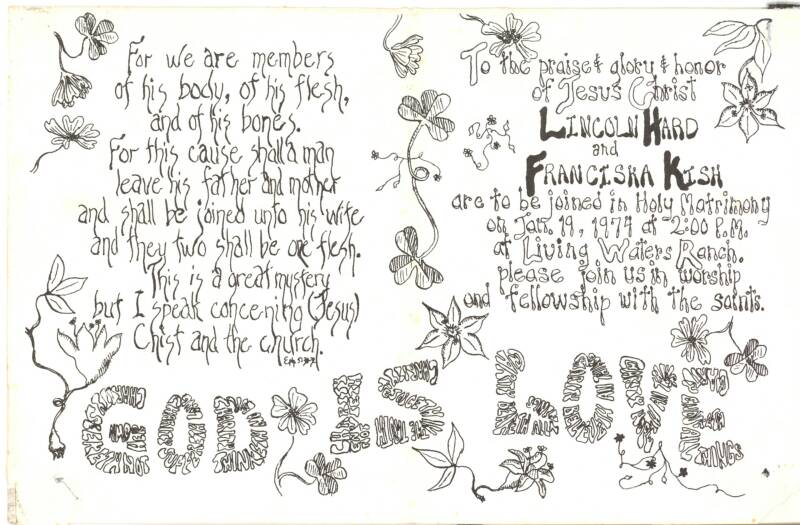 For we are members
of his body, of his flesh,
and of his bones.
For this cause shall a man
leave his father and mother
and shall be joined unto his wife
and they two shall be one flesh.
This is a great mystery
but I speak concerning (Jesus)
Chist and the church.
To the praise & glory & honor
of Jesus Christ
LINCOLN HARD
and
FRANCISKA KISH
are to be joined in Holy Matrimony
on Jan. 19, 1974 at 2:00 P.M.
at Living Waters Ranch.
please join us in worship
and fellowship with the saints.
GOD IS LOVE